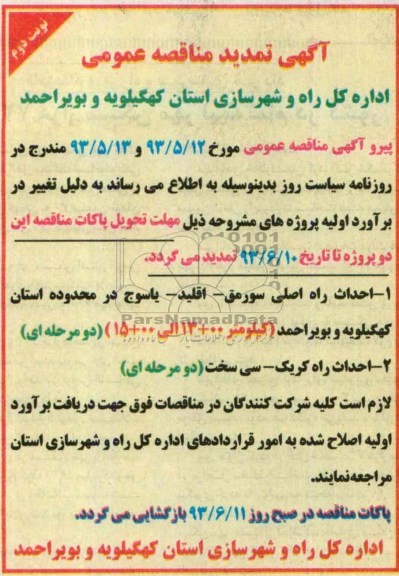 نوبت دوم
آگهی تمدید مناقصه عمومی
اداره کل راه و شهرسازی استان کهگیلویه و بویراحمد
پیرو آگهی مناقصه عمومی مورخ ۹۳/۵/۱۲ و ۹۳/۵/۱۳ مندرج در
روزنامه سیاست روز بدینوسیله به اطلاع می رساند به دلیل تغییر در
برآورد اولیه پروژه های مشروحه ذیل مهلت تحویل پاکات مناقصه این
دو پروژه تا تاریخ ۹۳/۶/۱۰ تمدید می گردد.
۱-احداث راه اصلی سورمق- اقلید- یاسوج در محدوده استان
کهگیلویه و بویراحمد (کیلومتر ۰۰+۱۳ الی ۰۰+۱۵) (دو مرحله ای)
ParsNamadData
۲-احداث راه کریک- سی سخت (دو مرحله ای)
لازم است کلیه شرکت کنندگان در مناقصات فوق جهت دریافت برآورد
اولیه اصلاح شده به امور قراردادهای اداره کل راه و شهرسازی استان
مراجعه نمایند.
پاکات مناقصه در صبح روز ۹۳/۶/۱۱ بازگشایی می گردد.
اداره کل راه و شهرسازی استان کهگیلویه و بویراحمد